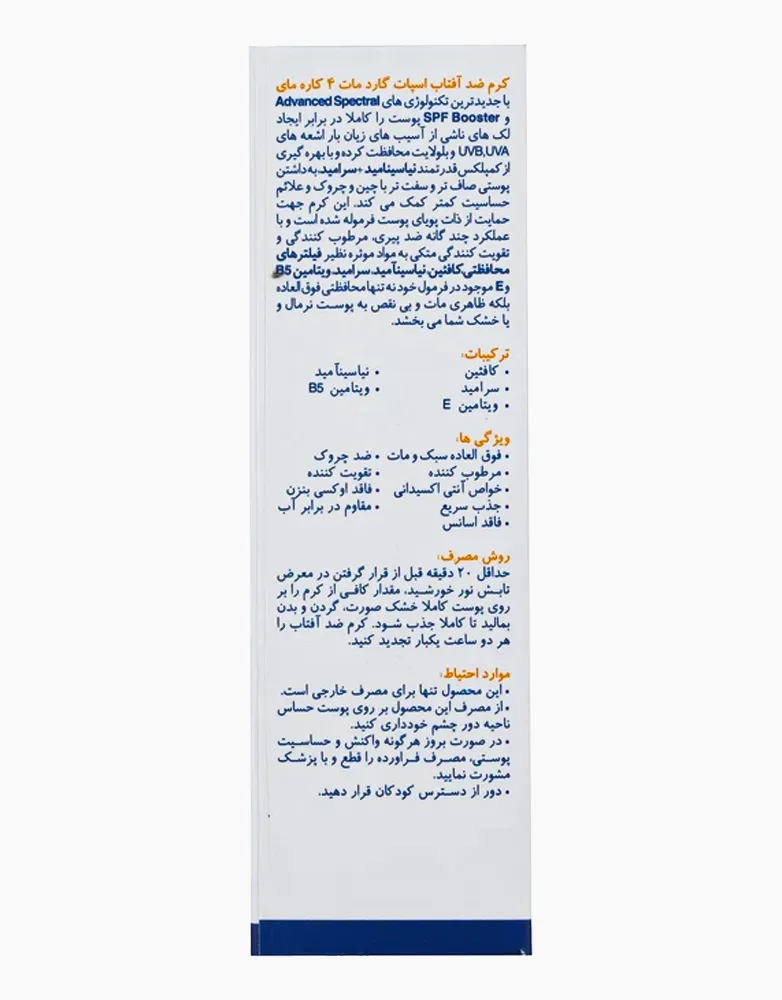 کرم ضد آفتاب اسپات گارد مات ۴ کاره مای
با جدیدترین تکنولوژی های Advanced Spectral
و SPF Booster پوست را کاملا در برابر ایجاد
لک های ناشی از آسیب های زیان بار اشعه های
UVB,UVA وبلولایت محافظت کرده و با بهره گیری
از کمپلکس قدرتمند نیاسینامید+سرامید، به داشتن
پوستی صاف تر و سفت تر با چین و چروک و علائم
حساسیت کمتر کمک می کند. این کرم جهت
حمایت از ذات پویای پوست فرموله شده است و با
عملکرد چند گانه ضد پیری، مرطوب کنندگی و
تقویت کنندگی متکی به مواد موثره نظیر فیلترهای
محافظتی،کافئین،نیاسینآمید،سرامید،ویتامین B5
و E موجود در فرمول خود نه تنها محافظتی فوق العاده
بلکه ظاهری مات و بی نقص به پوست نرمال و
یا خشک شما می بخشد.
ترکیبات:
• کافئین • نیاسینآمید
• سرامید • ویتامین B5
• ویتامین E
ویژگی ها:
• فوق العاده سبک و مات • ضد چروک
• مرطوب کننده • تقویت کننده
• خواص آنتی اکسیدانی • فاقد اوکسی بنزن
• جذب سریع • مقاوم در برابر آب
• فاقد اسانس
روش مصرف:
حداقل ۲۰ دقیقه قبل از قرار گرفتن در معرض
تابش نور خورشید، مقدار کافی از کرم را بر
روی پوست کاملا خشک صورت، گردن و بدن
بمالید تا کاملا جذب شود. کرم ضد آفتاب را
هر دو ساعت یکبار تجدید کنید.
موارد احتیاط:
• این محصول تنها برای مصرف خارجی است.
• از مصرف این محصول بر روی پوست حساس
ناحیه دور چشم خودداری کنید.
• در صورت بروز هرگونه واکنش و حساسیت
پوستی، مصرف فراورده را قطع و با پزشک
مشورت نمایید.
• دور از دسترس کودکان قرار دهید.